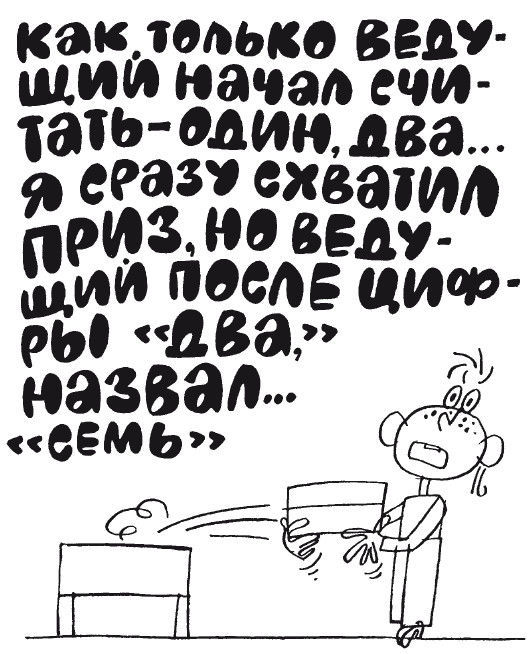 как, только веду-
щий начал счи-
тать-один, два...
я сразу схватил
приз, но веду-
щий после циф-
ры «два,»
назвал...
«семь»